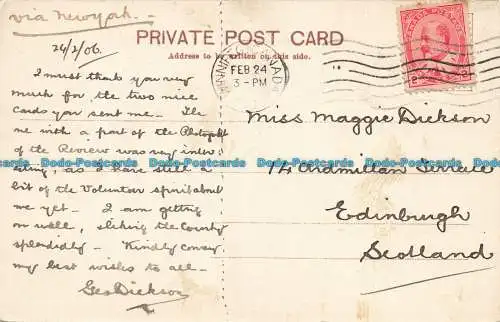 via New York. —
PRIVATE POST CARD
Address to be written on this side.
24/2/06.
CANADA
FEB 24
3 - PM
CANADA POSTAGE
2 2
I must thank you very
much for the two nice
cards you sent me — The
one with a part of the Photograph
of the Review was very inter
esting, as I have still a
bit of the Volunteer spirit about
me yet — I am getting
on well, liking the Country
splendidly — Kindly convey
my best wishes to all —
Geo Dickson
Miss Maggie Dickson
14 Ardmillan Terrace
Edinburgh
Scotland
Postcards Postcards Postcards Postcards Postcards Postcards